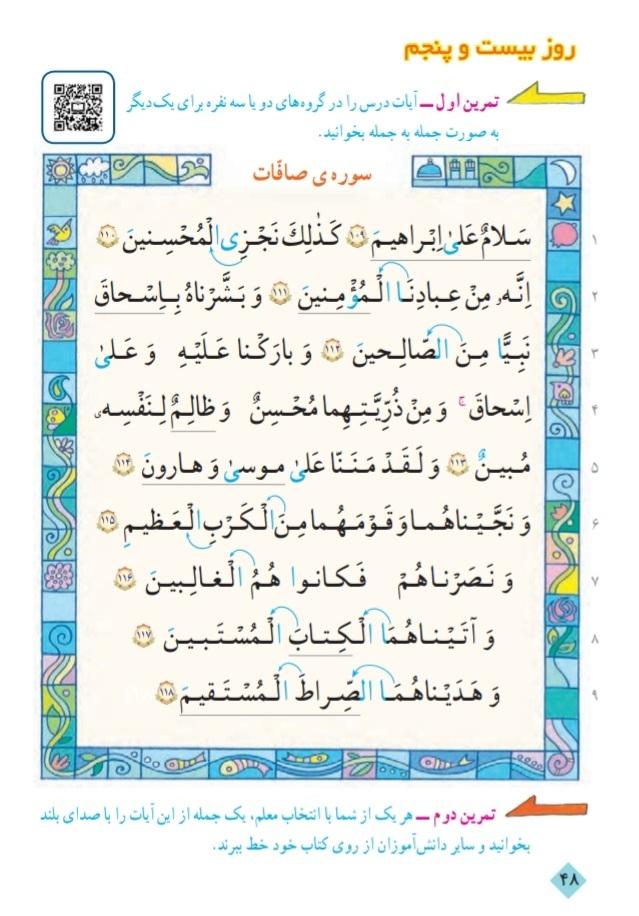 روز بیست و پنجم
تمرین اول ــ آیات درس را در گروه‌های دو یا سه نفره برای یک‌دیگر
به صورت جمله به جمله بخوانید.
سوره‌ی صافّات
سَلامٌ عَلیٰ اِبْراهیمَ ۱۰۹ کَذٰلِكَ نَجْزِی الْمُحْسِنینَ ۱۱۰ ۱
اِنَّهُ مِنْ عِبادِنَا الْمُؤْمِنینَ ۱۱۱ وَ بَشَّرْناهُ بِاِسْحاقَ ۲
نَبِیًّا مِنَ الصّالِحینَ ۱۱۲ وَ بارَکْنا عَلَیْهِ وَ عَلیٰ ۳
اِسْحاقَ ۚ وَ مِنْ ذُرِّیَّتِهِما مُحْسِنٌ وَ ظالِمٌ لِنَفْسِه۪ی ۴
مُبینٌ ۱۱۳ وَ لَقَدْ مَنَنّا عَلیٰ موسیٰ وَ هارونَ ۱۱۴ ۵
وَ نَجَّیْناهُما وَ قَوْمَهُما مِنَ الْکَرْبِ الْعَظیمِ ۱۱۵ ۶
وَ نَصَرْناهُمْ فَکانوا هُمُ الْغالِبینَ ۱۱۶ ۷
وَ آتَیْناهُمَا الْکِتابَ الْمُسْتَبینَ ۱۱۷ ۸
وَ هَدَیْناهُمَا الصِّراطَ الْمُسْتَقیمَ ۱۱۸ ۹
تمرین دوم ــ هر یک از شما با انتخاب معلم، یک جمله از این آیات را با صدای بلند
بخوانید و سایر دانش‌آموزان از روی کتاب خود خط ببرند.
۴۸